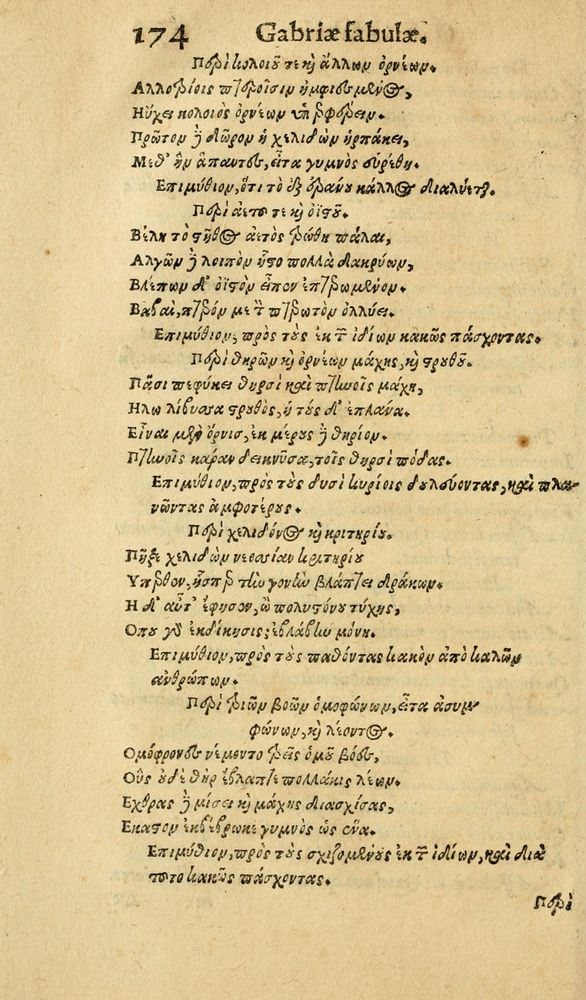 174 Gabriæ fabulæ.
Περὶ κολοιοῦ τε καὶ ἄλλων ὀρνέων.
Αλλοτρίοις πτεροῖσιν ἠμφιεσμένος,
Ηὔχει κολοιὸς ὀρνέων ὑπερφέρειν.
Πρῶτον δὲ δῶρον ἡ χελιδὼν ἡρπάκει,
Μεθ' ἣν ἅπαντες, εἶτα γυμνὸς εὑρέθη.
Επιμύθιον, ὅτι τὸ ἐξ ἐράνου κάλλος διαλύεται.
Περὶ ἀετοῦ τε καὶ ὀϊστοῦ.
Βέλει τὸ στῆθος ἀετὸς τρώθη πάλαι,
Αλγῶν δὲ λοιπὸν ἧστο πολλὰ δακρύων,
Βλέπων δ' ὀϊστὸν εἶπεν ἐπτερωμένον.
Βαβαὶ, πτερόν με τὸν πτερωτὸν ὀλλύει.
Επιμύθιον, πρὸς τοὺς ἐκ τῶν ἰδίων κακῶς πάσχοντας.
Περὶ θηρῶν καὶ ὀρνέων μάχης, καὶ στρουθοῦ.
Πᾶσι πεφύκει θηρσὶ καὶ πτηνοῖς μάχη,
Ηλω λίβυσσα στρουθὸς, ἡ τοὺς δ' ἐπλάνα.
Εἶναι μὲν ὄρνις, ἐκ μέρους δὲ θηρίον.
Πτηνοῖς κάραν δεικνῦσα, τοῖς θηρσὶ πόδας.
Επιμύθιον, πρὸς τοὺς δυσὶ κυρίοις δουλεύοντας, καὶ πλα
νῶντας ἀμφοτέρους.
Περὶ χελιδόνος καὶ κριτηρίου.
Πῆξε χελιδὼν νεοσσίαν κριτηρίου
Υπερθεν, ἧσπερ τὴν γονὴν βλάπτει δράκων.
Η δ' αὖτ' ἔφησεν, ὦ πολυστόνου τύχης,
Οπου γὰρ ἐκδίκησις, ἐβλάβην μόνη.
Επιμύθιον, πρὸς τοὺς παθόντας κακὸν ἀπὸ καλῶν
ἀνθρώπων.
Περὶ τριῶν βοῶν ὁμοφώνων, εἶτα ἀσυμ
φώνων, καὶ λέοντος.
Ομόφρονες νέμοντο τρεῖς ὁμοῦ βόες,
Οὓς οὐδὲ θὴρ ἔβλαπτε πολλάκις λέων.
Εχθρας δὲ μίσει καὶ μάχης διασχίσας,
Εκαστον ἐκβέβρωκε γυμνὸς ὡς ἕνα.
Επιμύθιον, πρὸς τοὺς σχιζομένους ἐκ τῶν ἰδίων, καὶ διὰ
τοῦτο κακῶς πάσχοντας.
Περὶ